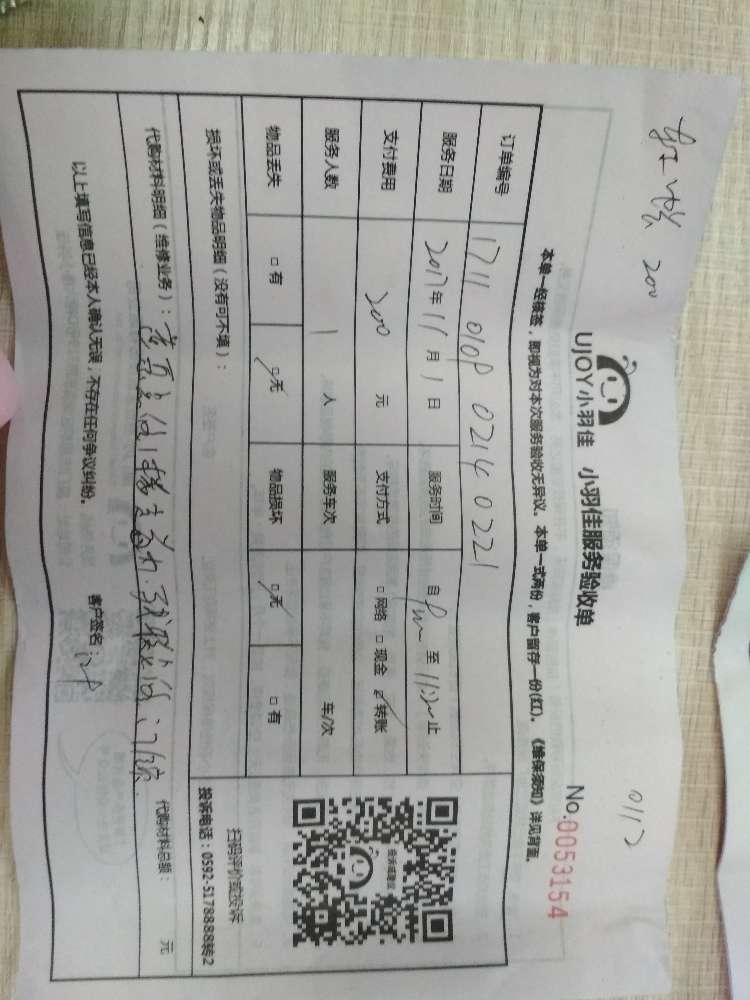 200
0117
UJOY小羽佳 小羽佳服务验收单
No.0053154
本单一经核签，即视为对本次服务验收无异议。本单一式两份，客户留存一份(红)。《维保须知》详见背面。
订单编号 1711 010P 0214 0221
服务日期 2017年 11 月 1 日 服务时间 自 至 止
支付费用 200 元 支付方式 □网络 □现金 ☑转账
服务人数 1 人 服务车次 车/次
物品丢失 □有 ☑无 物品损坏 ☑无 □有
损坏或丢失物品明细（没有可不填）：
扫码评价或投诉
投诉电话：0592-5178888转2
代购材料明细（维修业务）：
代购材料总额： 元
以上填写信息已经本人确认无误，不存在任何争议纠纷。
客户签名：